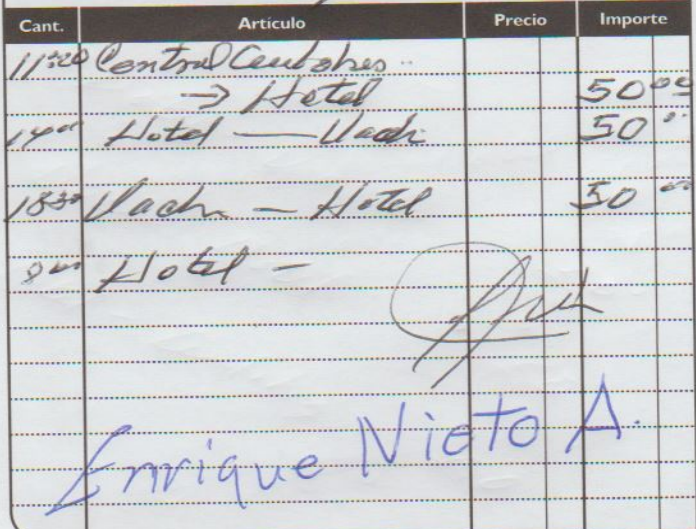 Cant. Artículo Precio Importe
11:20 Central
→ Hotel 50 00
14 00 Hotel — 50 00
18 30 — Hotel 50 00
8 00 Hotel —
Enrique Nieto A.